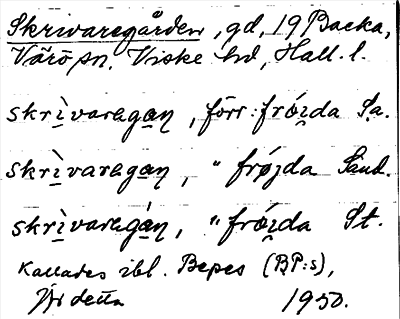 Skrivaregården, gd, 19 Backa,
Värö sn, Viske hd, Hall. l.
skrìvaragan, förr: fröjda Sa.
skrìvaragan, " fröjda Sand.
skrìvaragan, " fröjda St.
Kallades ibl. Bepes (BP:s),
Jfr detta 1950.